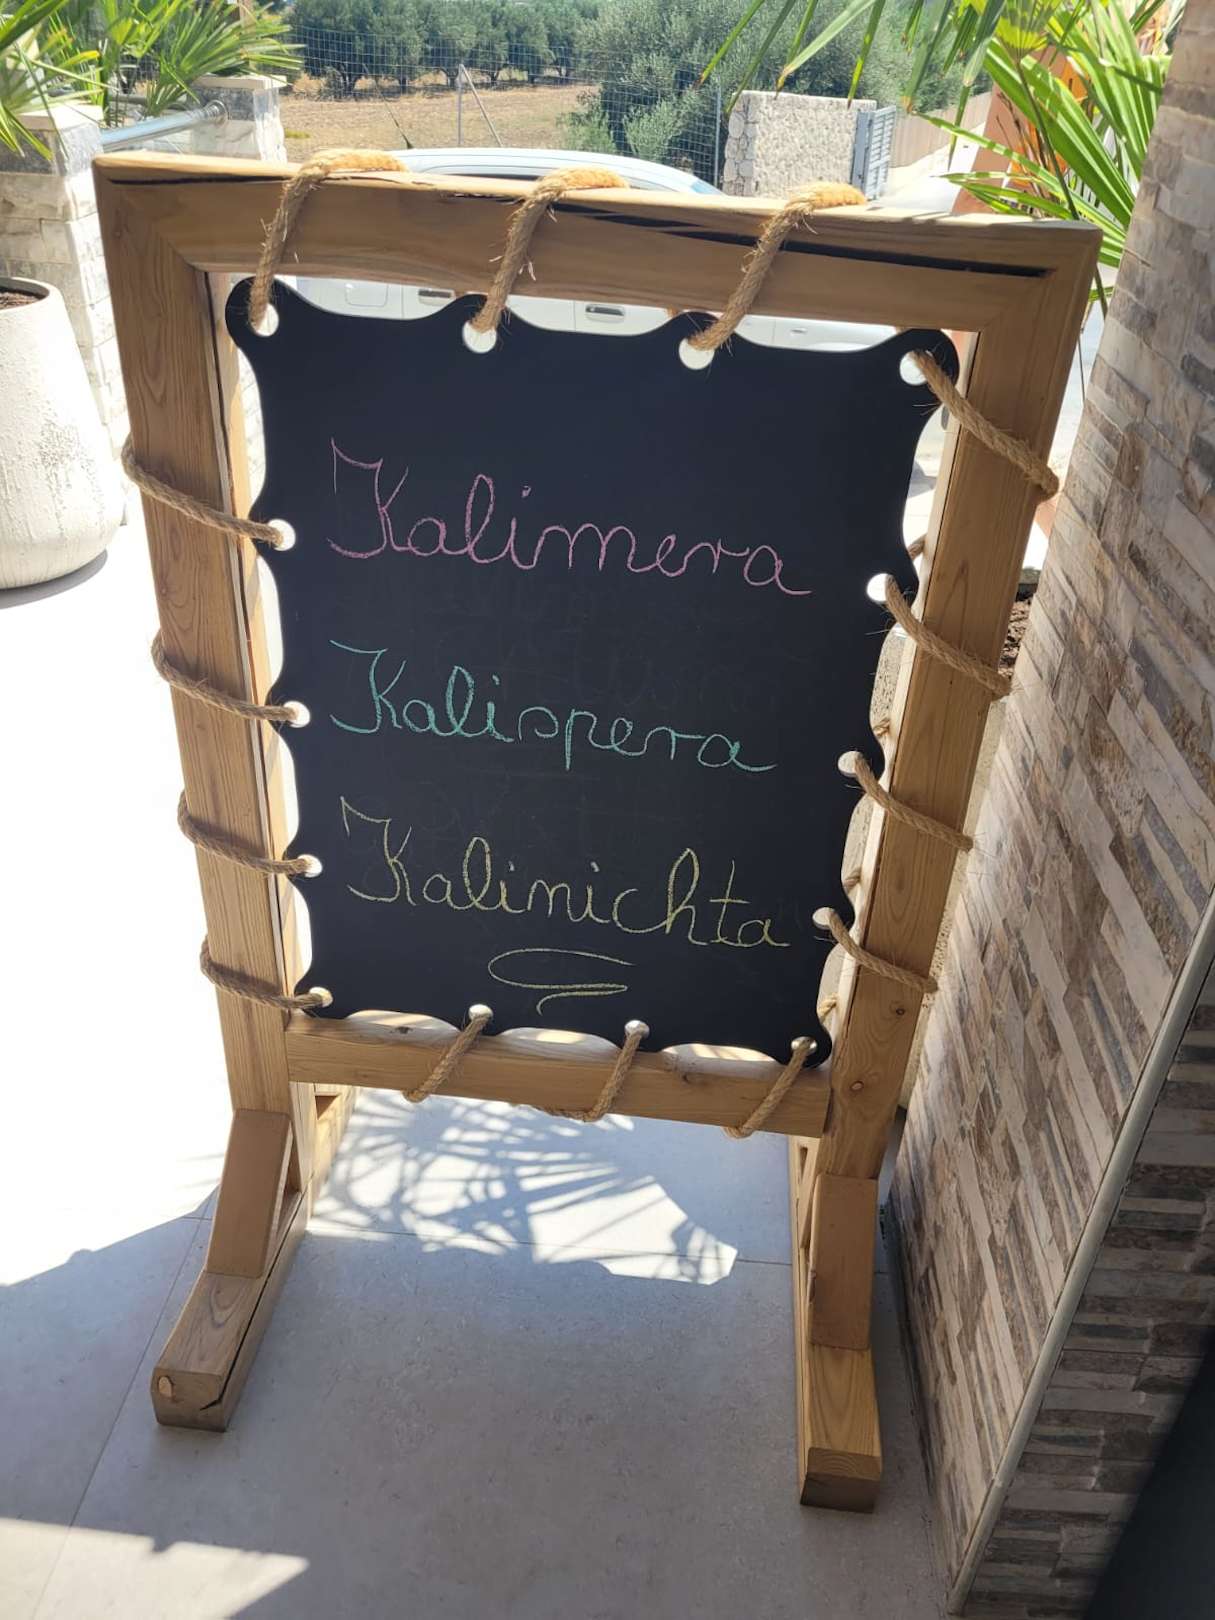 Kalimera
Kalispera
Kalinichta